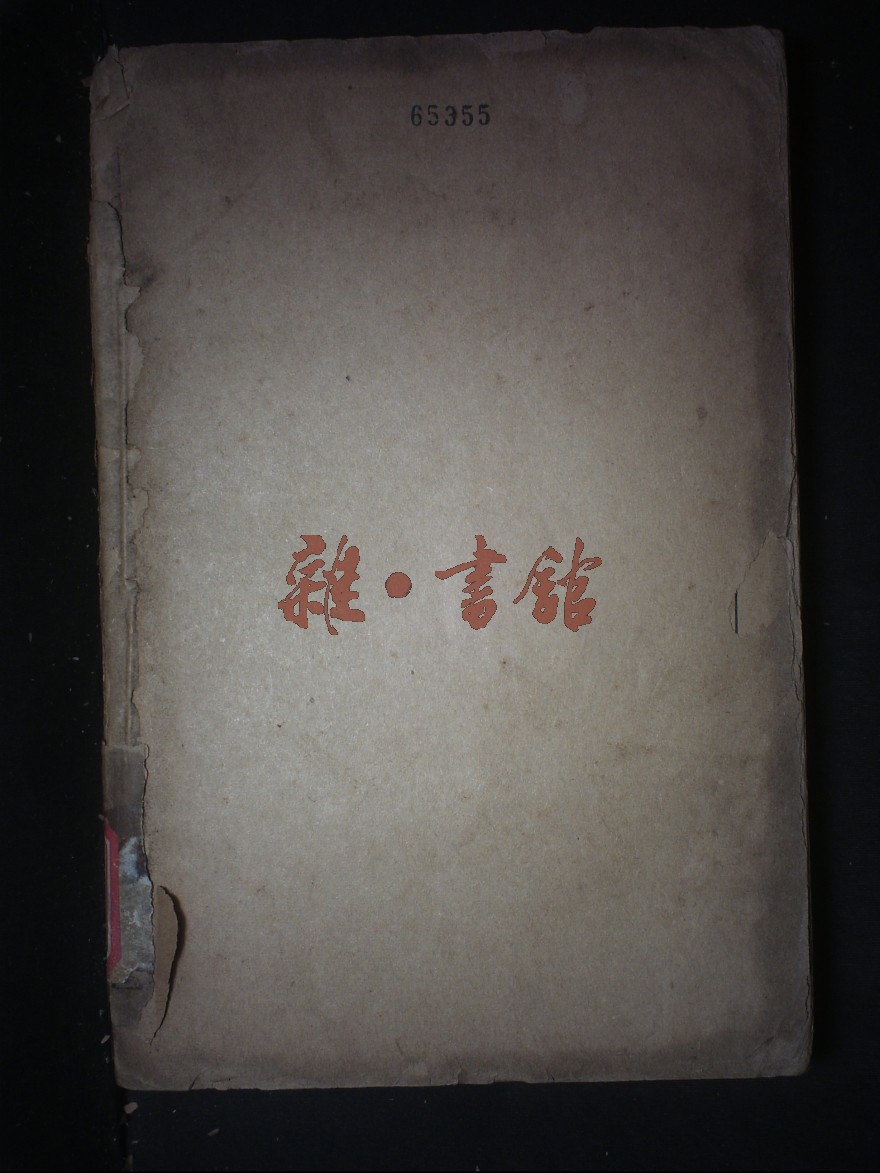 65355
雜·書館